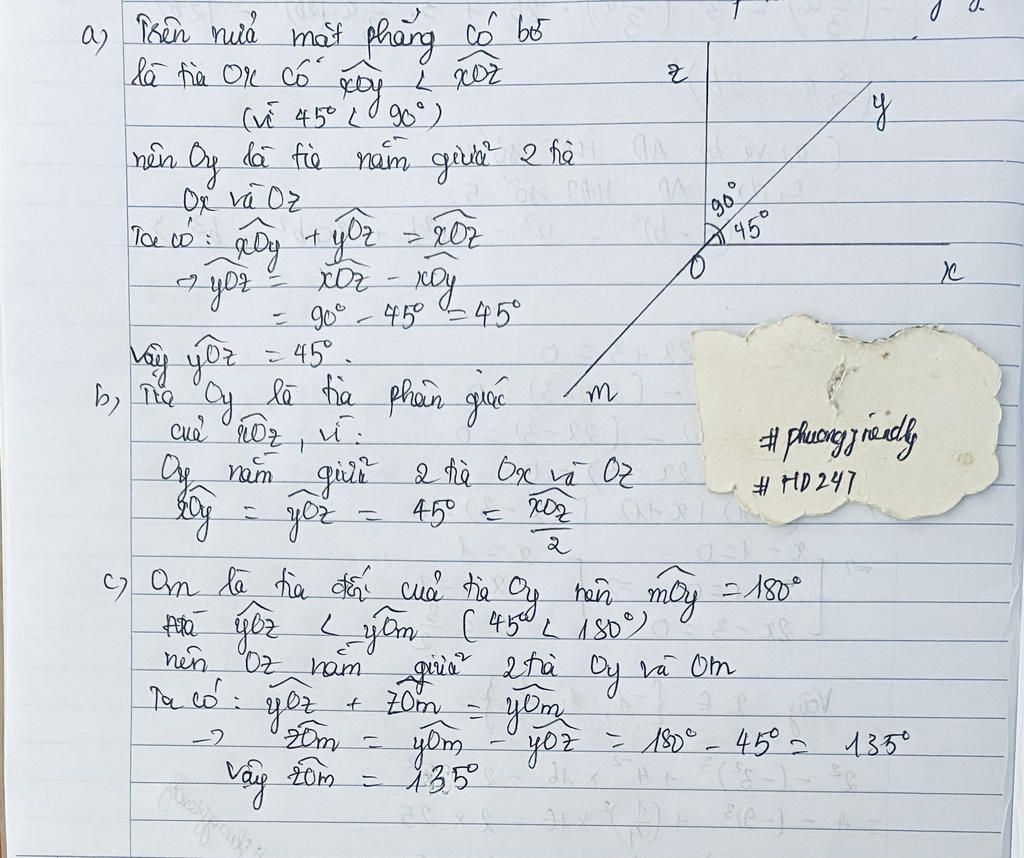 a) Trên nửa mặt phẳng có bờ
là tia Ox có xOy < xOz
(vì 45° < 90°)
nên Oy là tia nằm giữa 2 tia
Ox và Oz
Ta có: xOy + yOz = xOz
→ yOz = xOz - xOy
= 90° - 45° = 45°
Vậy yOz = 45°.
b) Tia Oy là tia phân giác
của xOz, vì:
Oy nằm giữa 2 tia Ox và Oz
xOy = yOz = 45° = xOz/2
c) Om là tia đối của tia Oy nên mOy = 180°
yOz < yOm (45° < 180°)
nên Oz nằm giữa 2 tia Oy và Om
Ta có: yOz + zOm = yOm
→ zOm = yOm - yOz = 180° - 45° = 135°
Vậy zOm = 135°
z
y
90°
45°
O
x
m
#phuongfriendly
#HD247